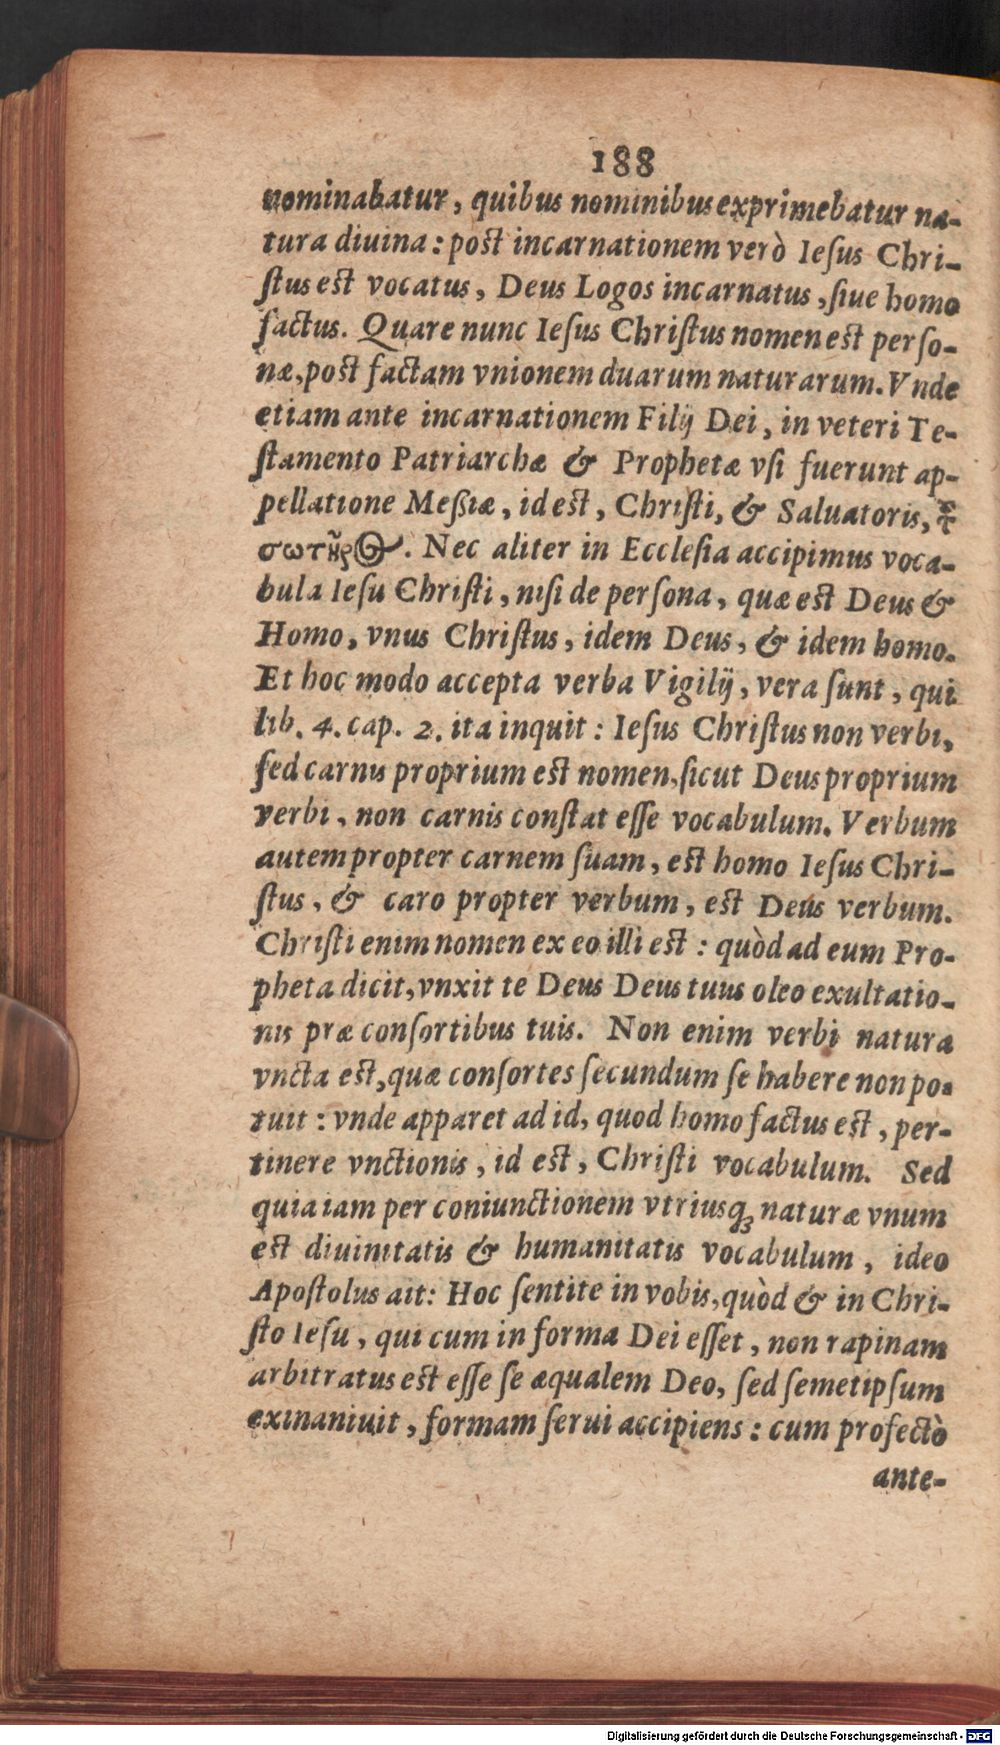 188
nominabatur, quibus nominibus exprimebatur na-
tura diuina: post incarnationem verò Iesus Chri-
ſtus est vocatus, Deus Logos incarnatus, ſiue homo
factus. Quare nunc Ieſus Chriſtus nomen est perſo-
næ, post factam vnionem duarum naturarum. Vnde
etiam ante incarnationem Filij Dei, in veteri Te-
ſtamento Patriarchæ & Prophetæ vſi fuerunt ap-
pellatione Meßiæ, id est, Chriſti, & Saluatoris,
σωτῆρος. Nec aliter in Eccleſia accipimus voca-
bula Ieſu Chriſti, niſi de perſona, quæ est Deus &
Homo, vnus Chriſtus, idem Deus, & idem homo.
Et hoc modo accepta verba Vigilij, vera ſunt, qui
lib. 4. cap. 2. ita inquit: Ieſus Chriſtus non verbi,
ſed carnis proprium est nomen, ſicut Deus proprium
verbi, non carnis conſtat eſſe vocabulum. Verbum
autem propter carnem ſuam, est homo Ieſus Chri-
ſtus, & caro propter verbum, est Deus verbum.
Chriſti enim nomen ex eo illi est: quòd ad eum Pro-
pheta dicit, vnxit te Deus Deus tuus oleo exultatio-
nis præ conſortibus tuis. Non enim verbi natura
vncta est, quæ conſortes ſecundum ſe habere non po-
tuit: vnde apparet ad id, quod homo factus est, per-
tinere vnctionis, id est, Chriſti vocabulum. Sed
quia iam per coniunctionem vtriusq; naturæ vnum
est diuinitatis & humanitatis vocabulum, ideo
Apoſtolus ait: Hoc ſentite in vobis, quòd & in Chri-
ſto Ieſu, qui cum in forma Dei eſſet, non rapinam
arbitratus est eſſe ſe æqualem Deo, ſed ſemetipſum
exinaniuit, formam ſerui accipiens: cum profectò
ante-
Digitalisierung gefördert durch die Deutsche Forschungsgemeinschaft - DFG